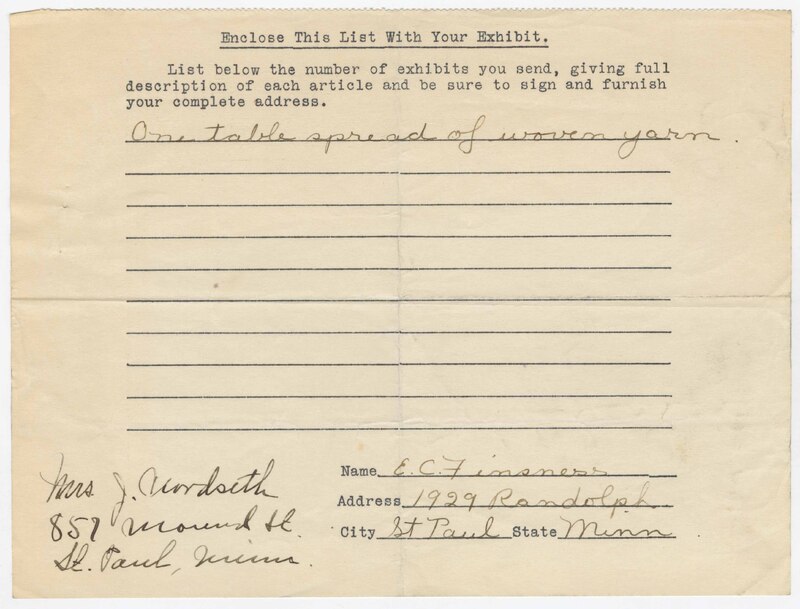 Enclose This List With Your Exhibit.
List below the number of exhibits you send, giving full
description of each article and be sure to sign and furnish
your complete address.
One table spread of woven yarn.
Name E.C. Finsness
Address 1929 Randolph
City St Paul State Minn
Mrs J. Nordseth
857 Mound St.
St. Paul, Minn.